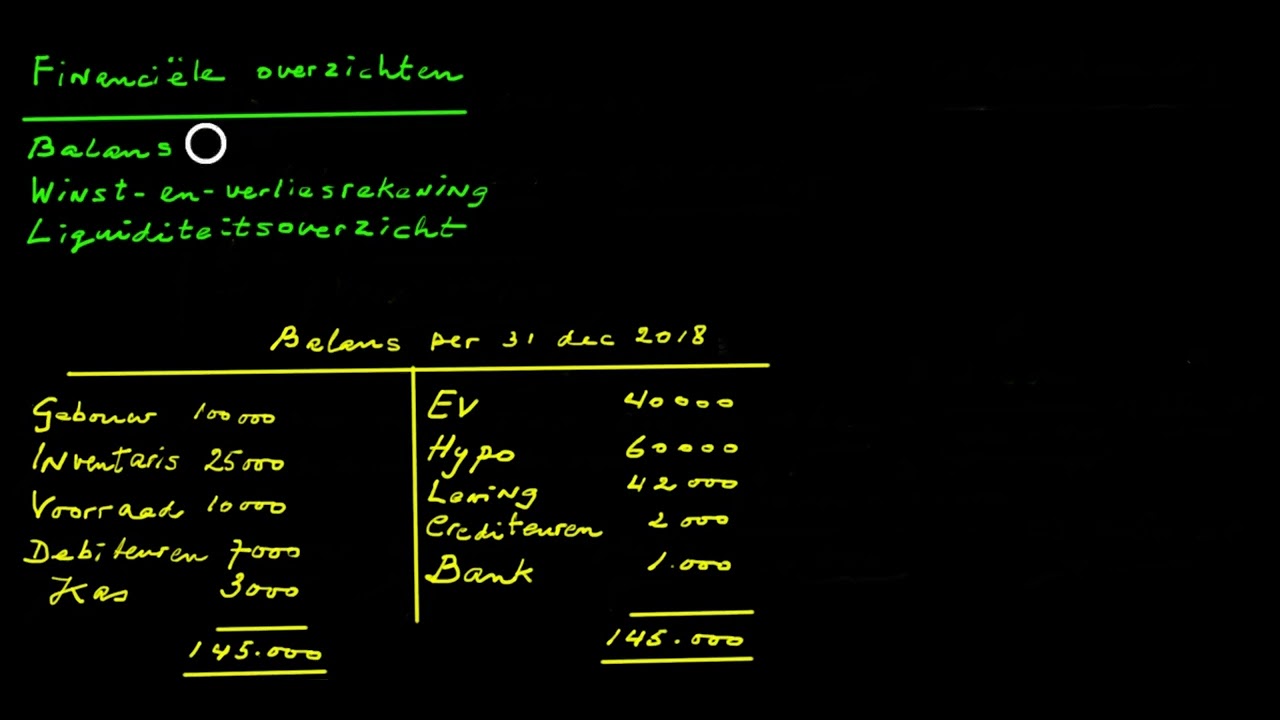 Financiële overzichten
Balans
Winst-en-verliesrekening
Liquiditeitsoverzicht
Balans per 31 dec 2018
Gebouw 100000 EV 40000
Inventaris 25000 Hypo 60000
Voorraad 10000 Lening 42000
Debiteuren 7000 Crediteuren 2000
Kas 3000 Bank 1.000
145.000 145.000